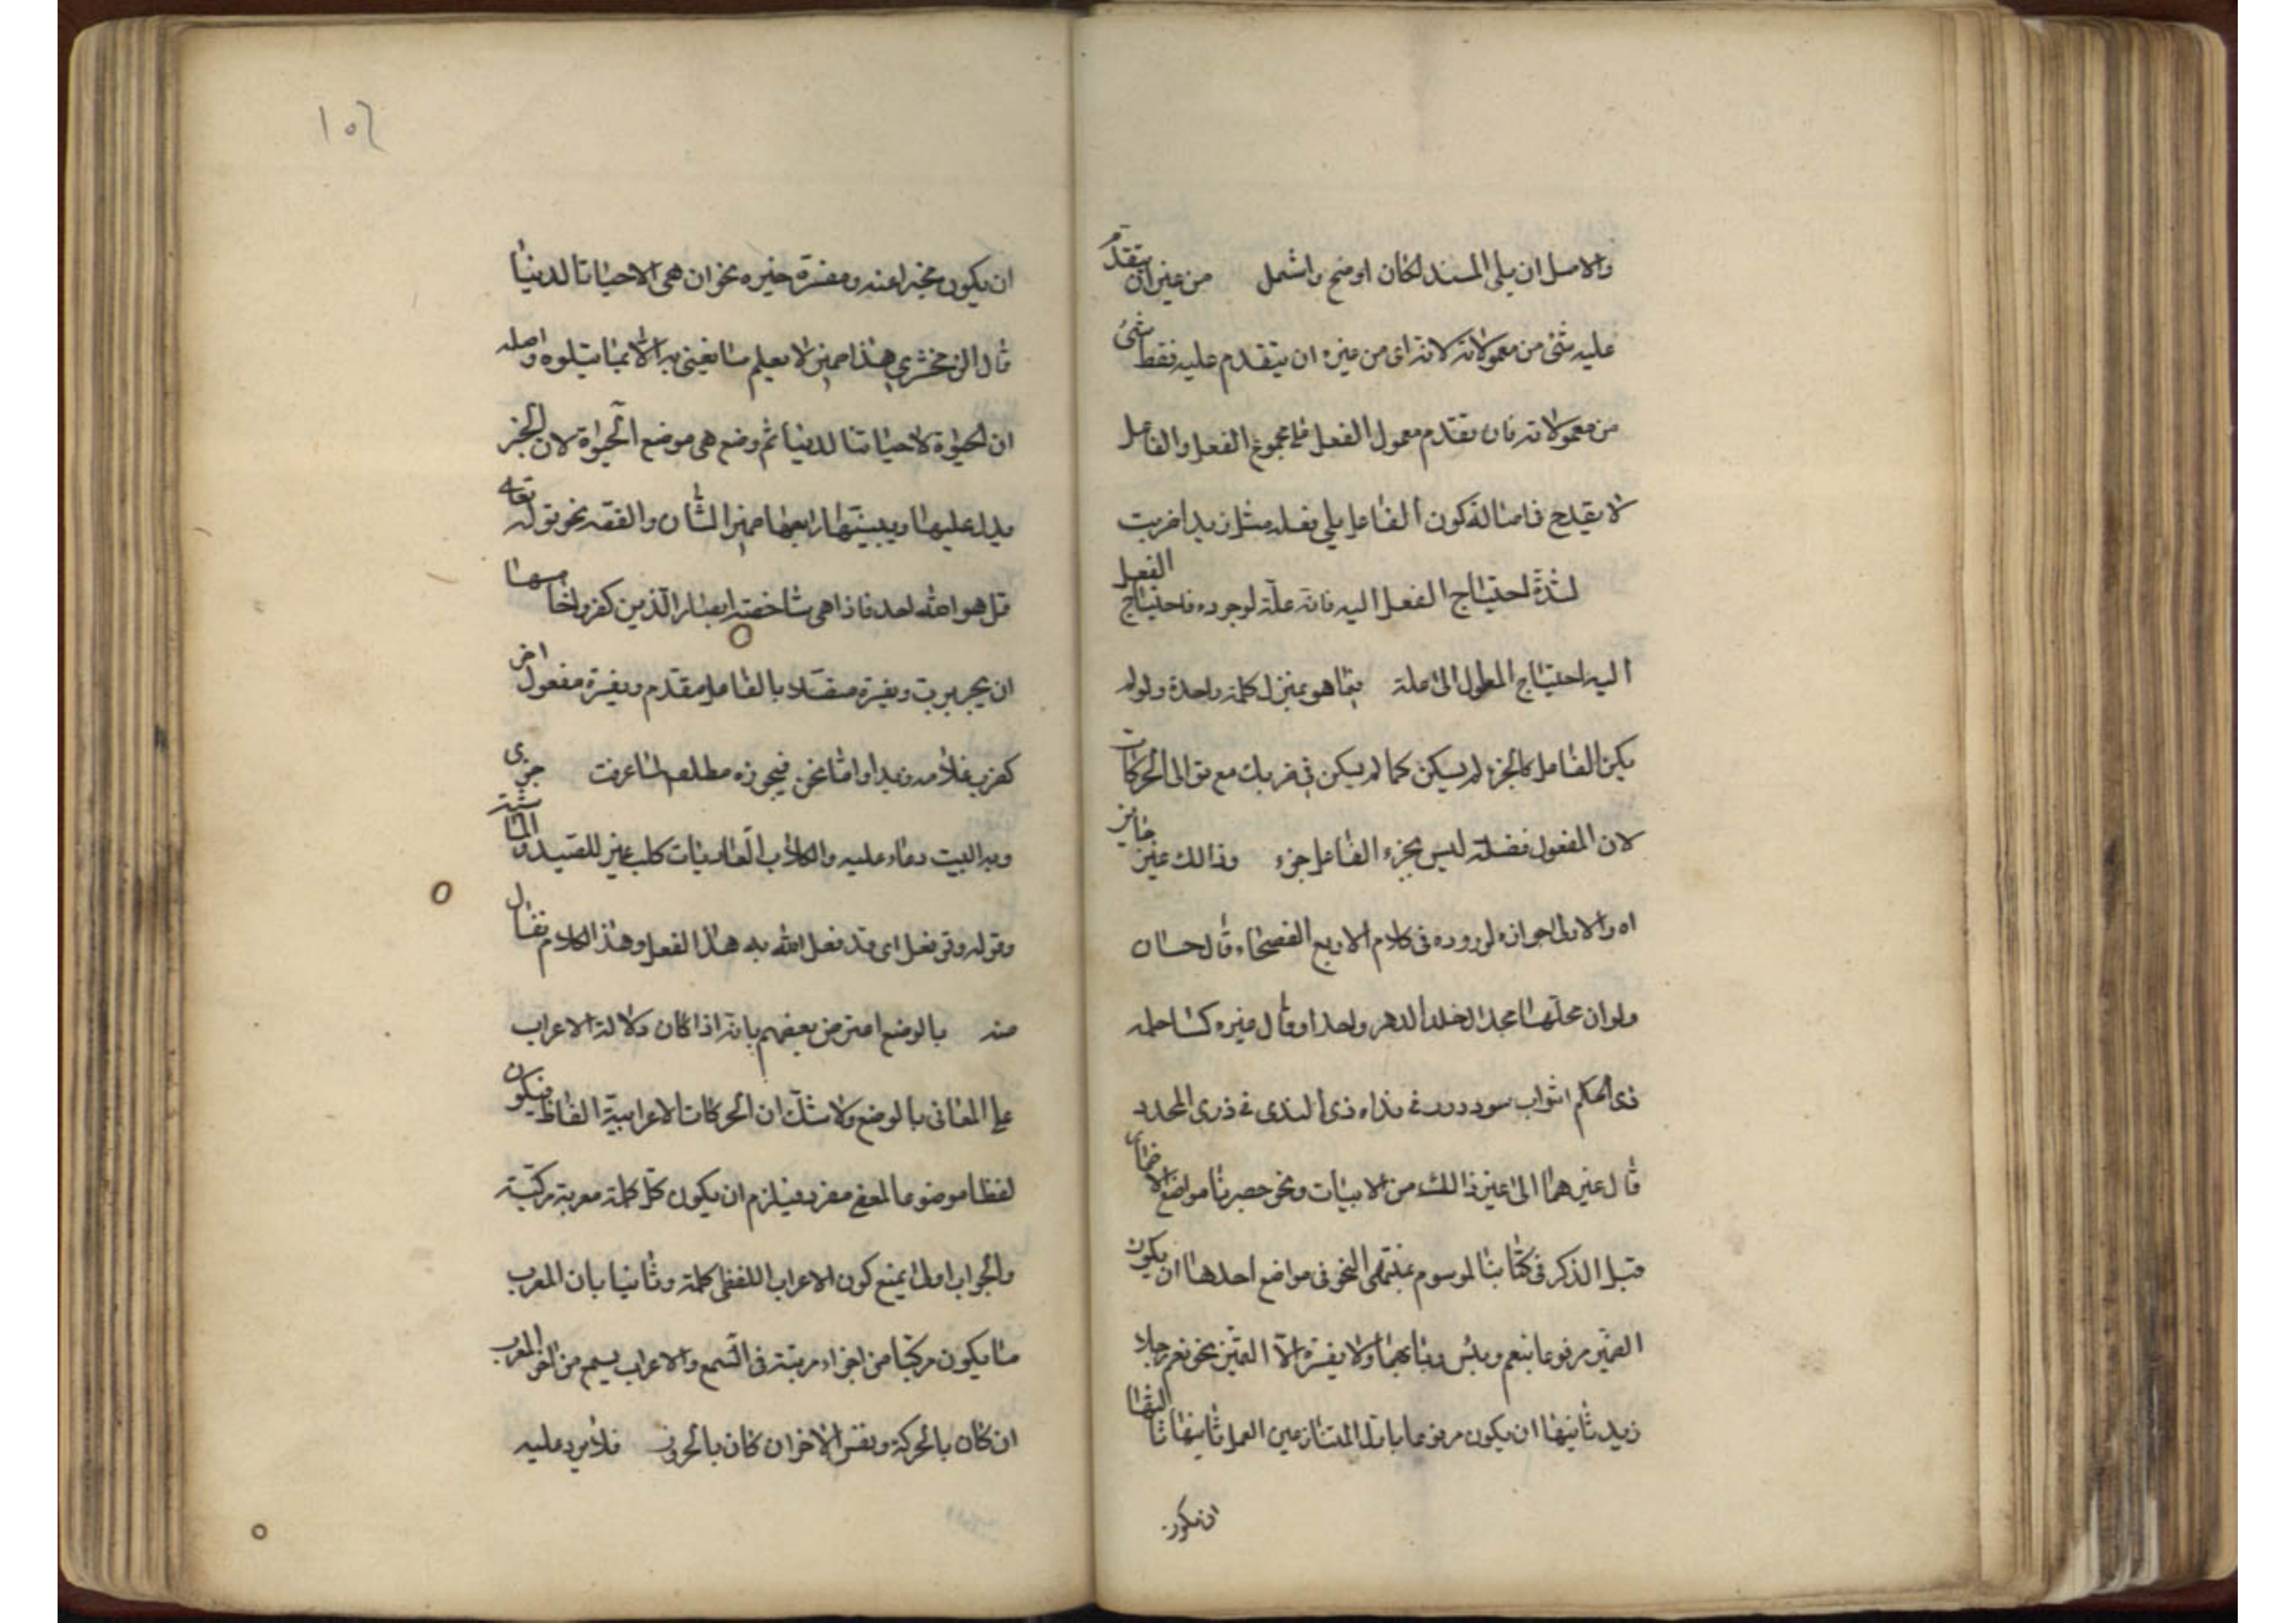 والاصل ان يلى المسند لكان اوضح واشمل من غير ان يتقدم
عليه شئ من معمولاته لانه اى من غيره ان يتقدم عليه فقط شئ
من معمولاته فان تقدم معمول الفعل على مجموع الفعل والفاعل
لا يقدح فامثاله كون الفاعل يلى فعله مثل زيدا ضربت
لشدة احتياج الفعل اليه فانه علة لوجوده فاحتياج الفعل
اليه احتياج المعلول الى علته فهما هو بمنزل كلمة واحدة ولو لم
يكن الفاعل كالجزء لم يسكن كما لم يسكن فى ضربك مع توالى الحركات
لان المفعول فضلة ليس بجزء الفاعل جزء وذالك غير جايز
اه والاولى جوازه لوروده فى كلام الاربع الفصحاء قال حسان
ولو ان مجدا اخلد الدهر واحدا وقال غيره كسا حلمه
ذى الحلم اثواب سودد ورقى نداه ذى الندى فى ذرى المجد
قال غيرهما الى غير ذالك من الابيات ونحو حصرنا مواضع الاضمار
قبل الذكر فى كتابنا الموسوم بمنتهى النحو فى مواضع احدها ان يكون
الضمير مرفوعا بنعم وبئس وبابهما ولا يفسره الا التميز نحو نعم رجلا
زيد ثانيها ان يكون مرفوعا باول المتنازعين العمل ثانيهما ثالثها
ان يكون
١٥٤
ان يكون مخبرا عنه ومفسره خبره نحو ان هى الا حياتنا الدنيا
قال الزمخشرى هذا ضمير لا يعلم ما يعنى به الا بما يتلوه واصله
ان الحيوة لا حياتنا الدنيا ثم وضع هى موضع الحيوة لان الخبر
يدل عليها ويبينها رابعها ضمير الشان والقصه نحو قوله تعالى
قل هو الله احد فاذا هى شاخصة ابصار الذين كفروا خامسها
ان يجر برب ويفسره مقتلا بالفاعل مقدم ويفسره مفعول اخر
كضرب غلامه زيدا وامثاله نحن فيجوزه مطلقا لما عرفت جزى
ربه البيت دعاء عليه والكلاب العاويات كلب غير للصيد والماشية
وقوله وقد فعل اى قد فعل الله به هذا الفعل وهذا الكلام تفأل
منه بالوضع اعترض بعضهم بانه اذا كان دلالة الاعراب
على المعانى بالوضع ولا شك ان الحركات الاعرابية الفاظ فيكون
لفظا موضوعا لمعنى مفرد فيلزم ان يكون كل كلمة معربة مركبة
والجواب اولا يمنع كون الاعراب اللفظى كلمة وثانيا بان المعرب
ما يكون مركبا من اجزاء مرتبة فى السمع والاعراب يسمع من المعرب
ان كان بالحركة ونفس الاخر ان كان بالحرف فلا يرد عليه